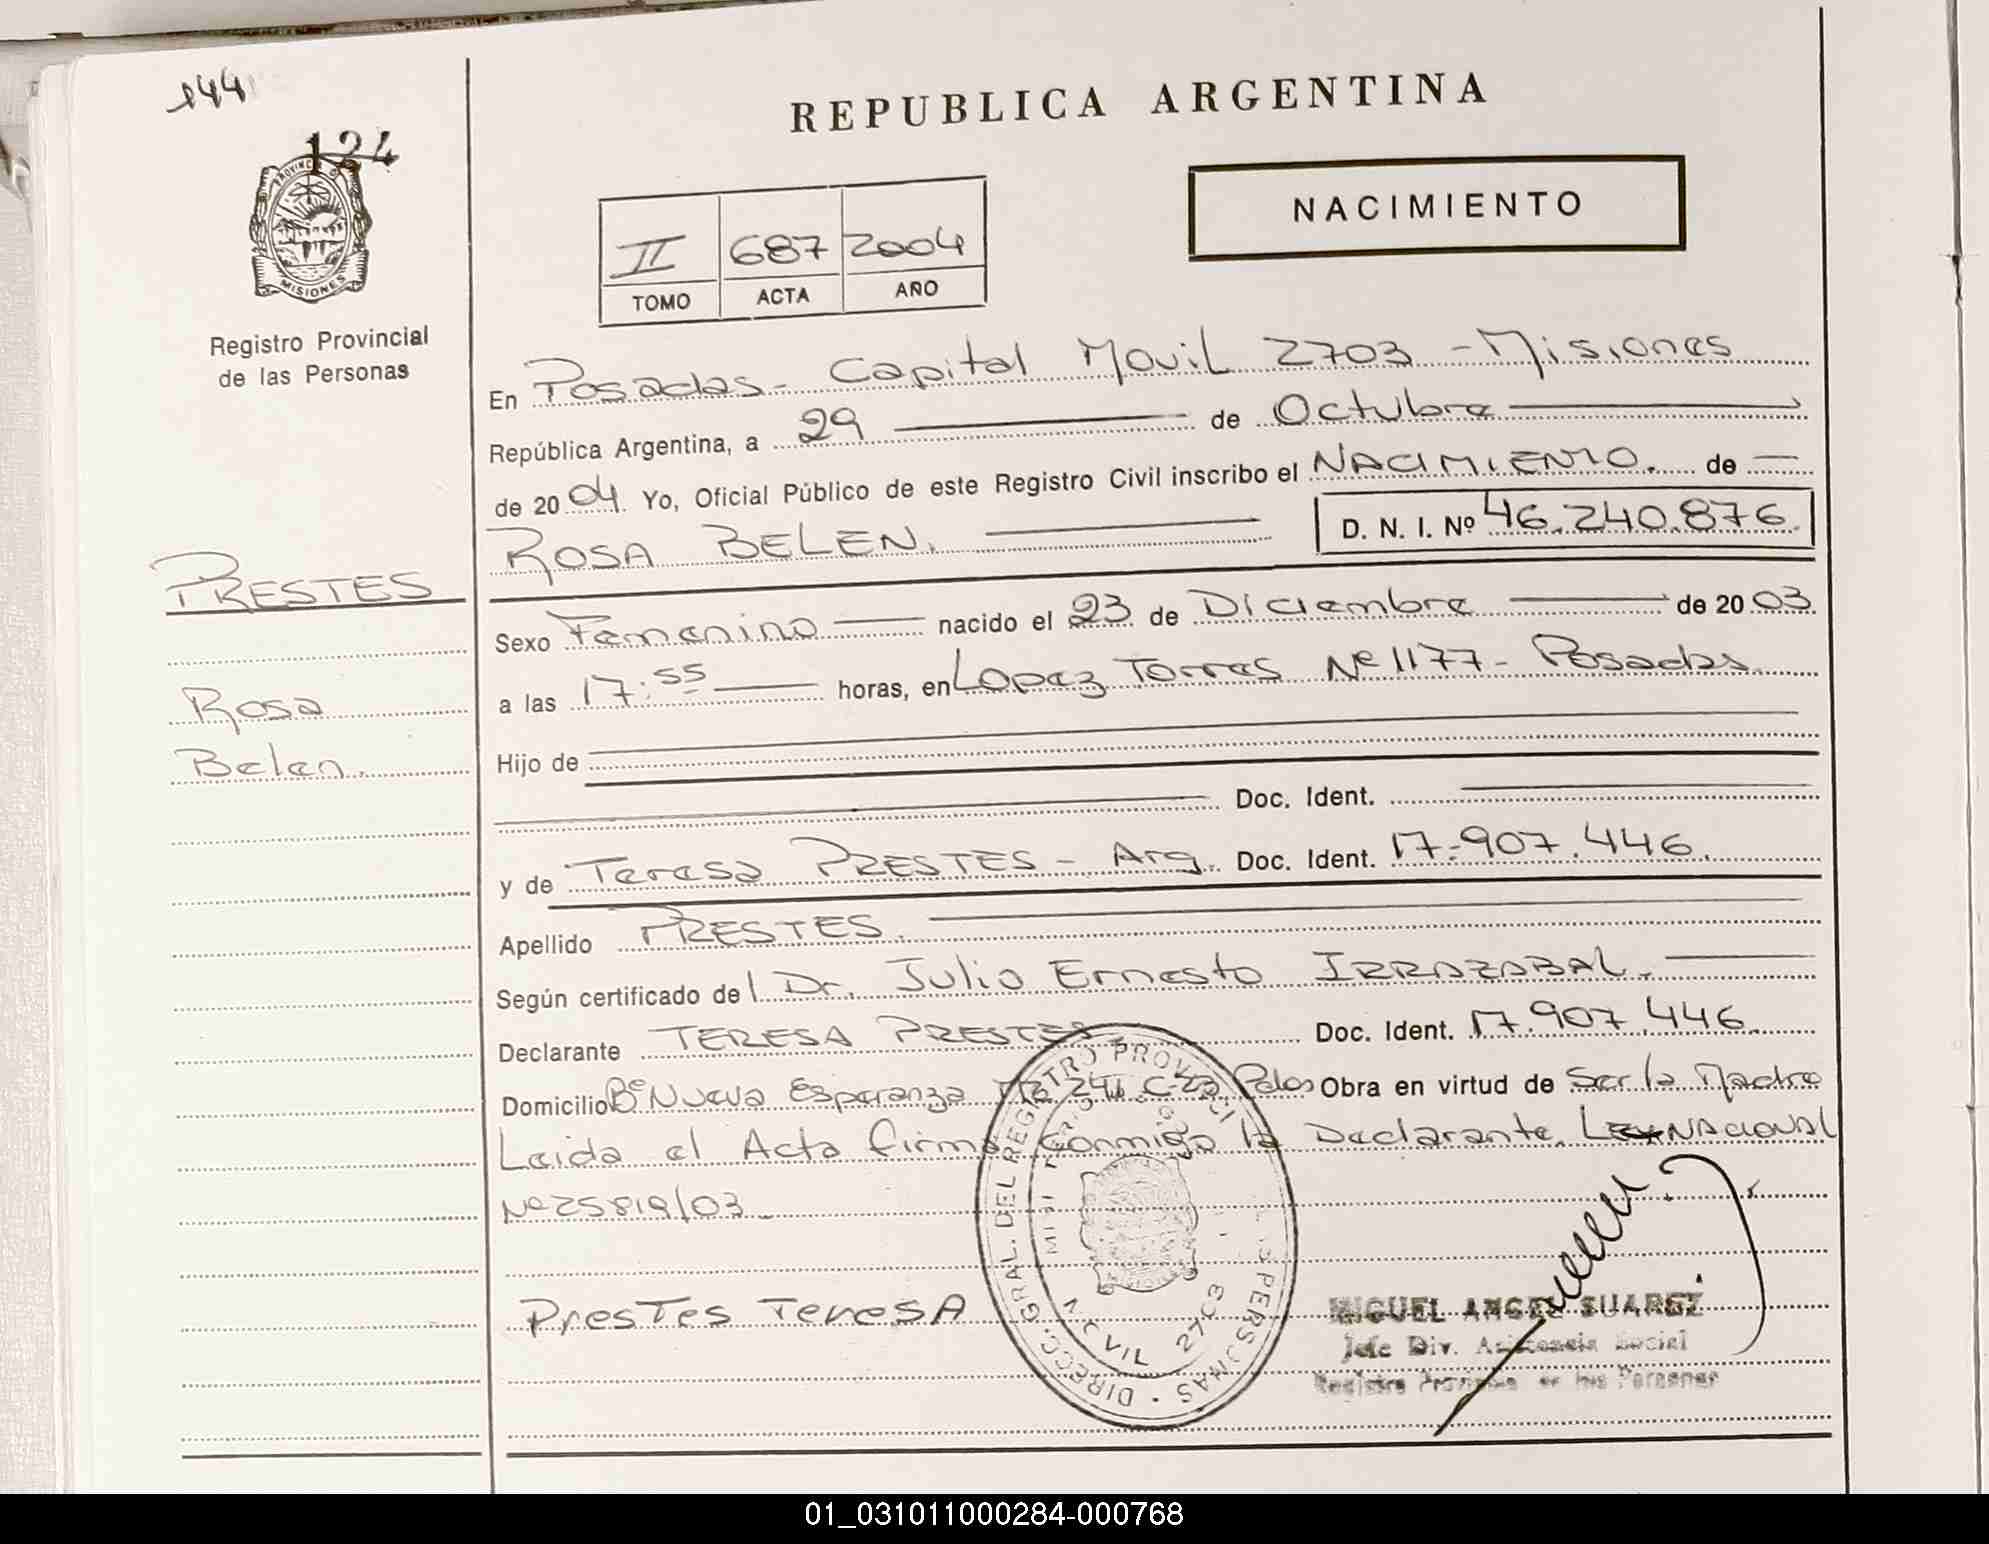 144
124
PROVINCIA DE
MISIONES
Registro Provincial
de las Personas
REPUBLICA ARGENTINA
NACIMIENTO
II 687 2004
TOMO ACTA AÑO
En Posadas - Capital Movil 2703 - Misiones
República Argentina, a 29 de Octubre
de 2004. Yo, Oficial Público de este Registro Civil inscribo el NACIMIENTO. de
ROSA BELEN. D. N. I. Nº 46.240.876
PRESTES
Rosa
Belen.
Sexo Femenino nacido el 23 de Diciembre de 2003.
a las 17:55 horas, en Lopez Torres Nº 1177 - Posadas
Hijo de
Doc. Ident.
y de Teresa PRESTES - Arg. Doc. Ident. 17.907.446.
Apellido PRESTES.
Según certificado del Dr. Julio Ernesto IRRAZABAL.
Declarante TERESA PRESTES Doc. Ident. 17.907.446
Domicilio Bº Nueva Esperanza Obra en virtud de Ser la Madre
Leida el Acta firma conmigo la Declarante. LEY NACIONAL
Nº 25819/03.
Prestes Teresa
DIRECC. GRAL. DEL REGISTRO PROVINCIAL PERSONAS
MOVIL 2703
MIGUEL ANGEL SUAREZ
Jefe Div. Asistencia Social
Registro Provincial de las Personas
01_031011000284-000768